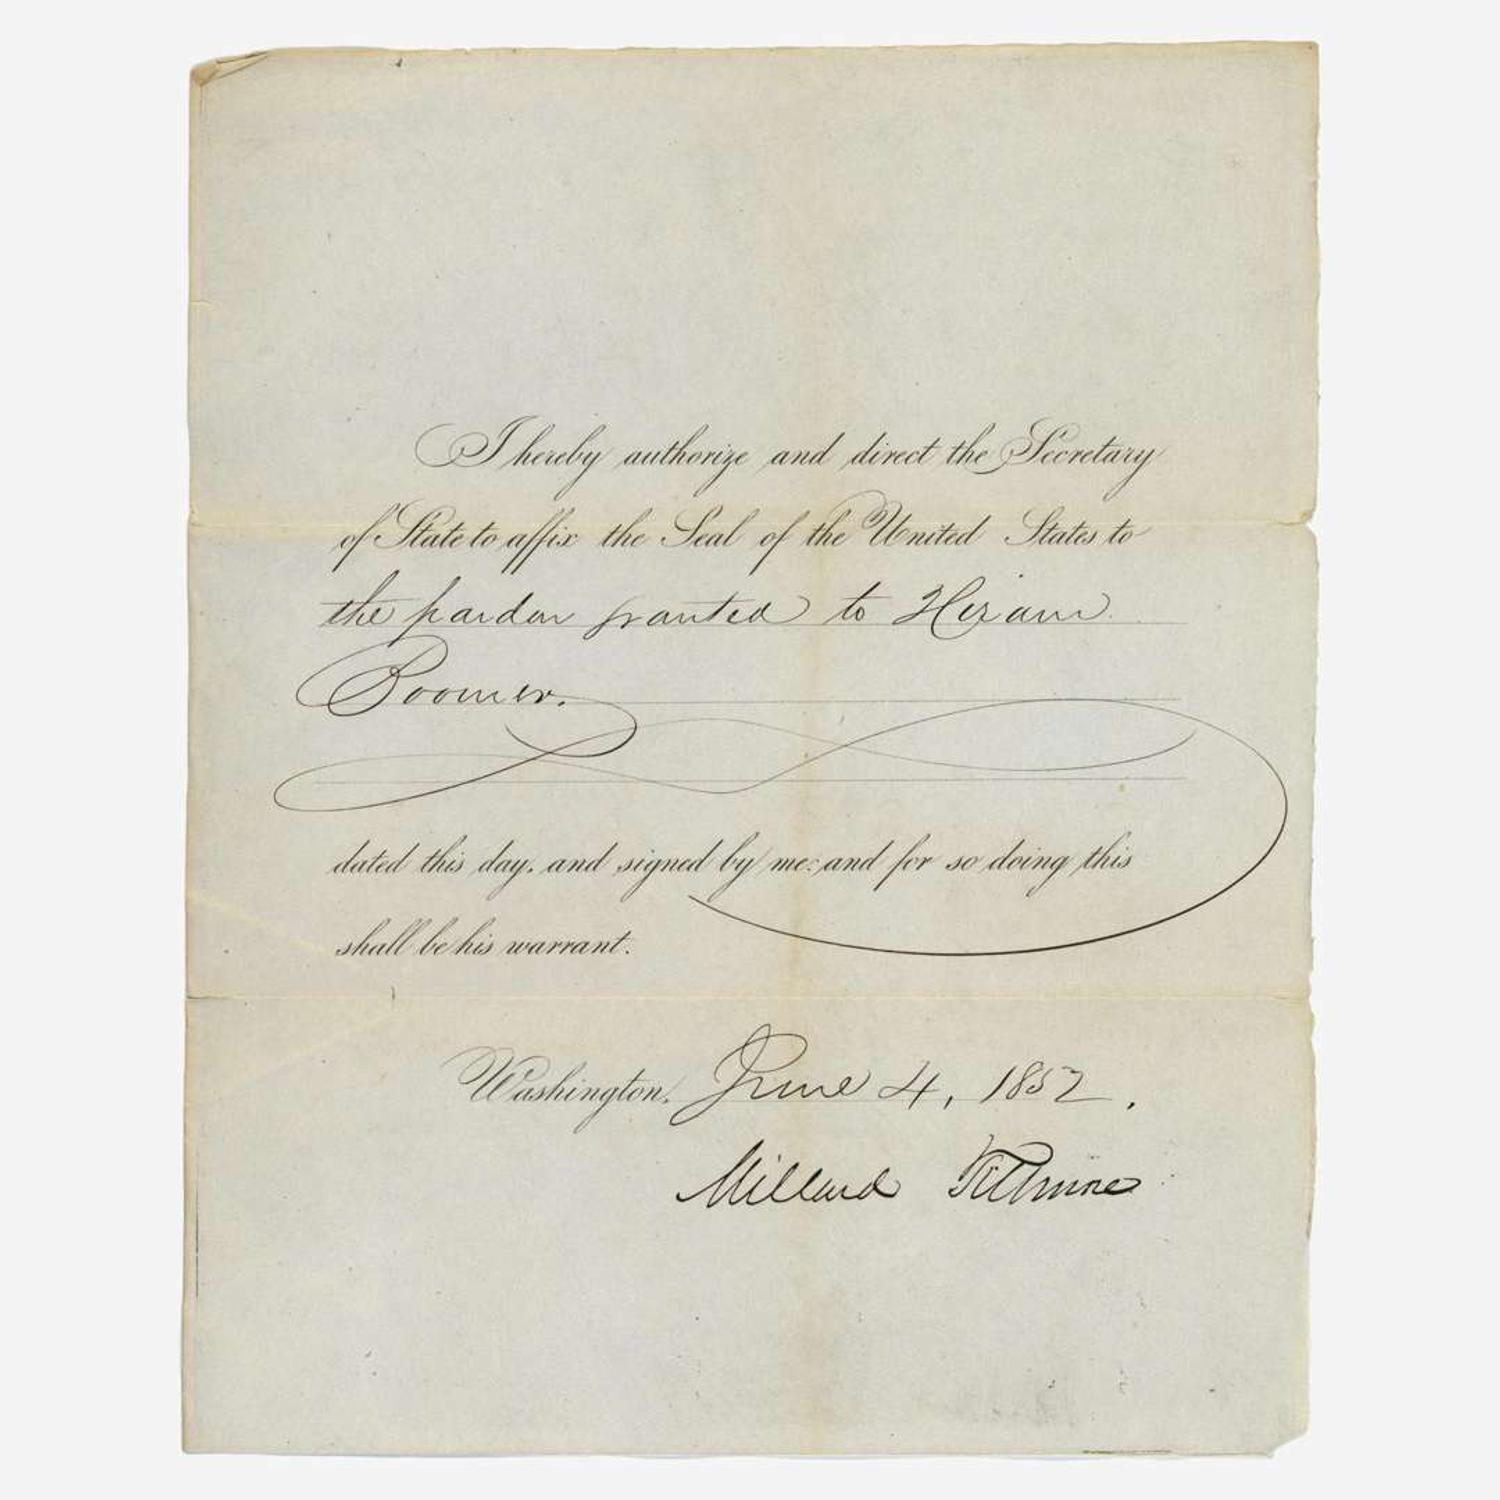 I hereby authorize and direct the Secretary
of State to affix the Seal of the United States to
the pardon granted to Hiram
Boomer.
dated this day, and signed by me: and for so doing this
shall be his warrant.
Washington, June 4, 1852.
Millard Fillmore